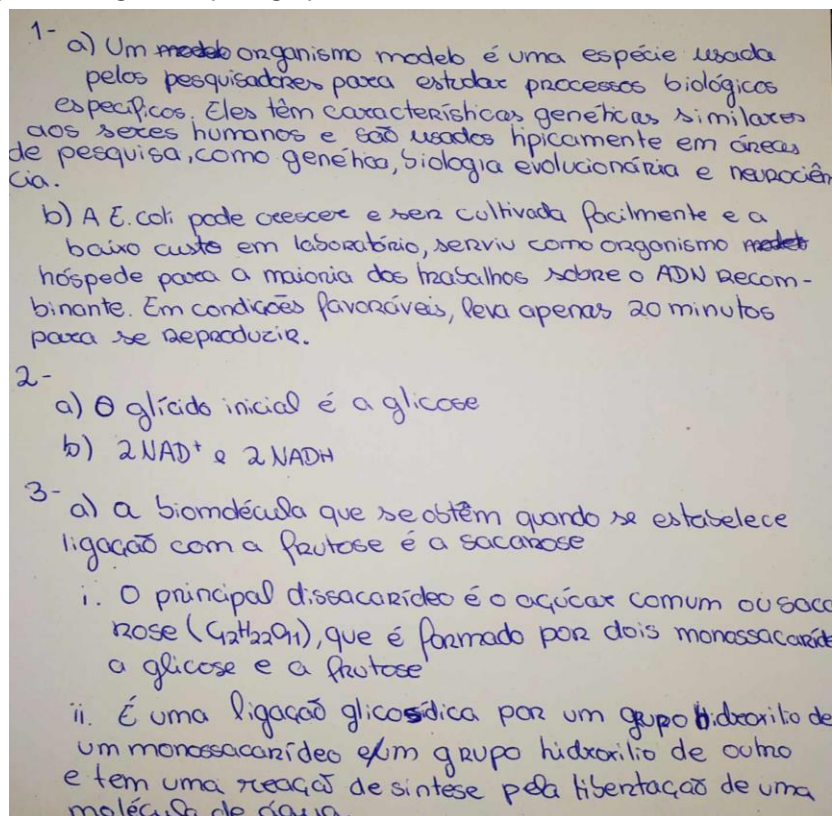 1- a) Um organismo modelo é uma espécie usada
pelos pesquisadores para estudar processos biológicos
específicos. Eles têm características genéticas similares
aos seres humanos e são usados tipicamente em áreas
de pesquisa, como genética, biologia evolucionária e neurociên
cia.
b) A E. coli pode crescer e ser cultivada facilmente e a
baixo custo em laboratório, serviu como organismo
hóspede para a maioria dos trabalhos sobre o ADN recom-
binante. Em condições favoráveis, leva apenas 20 minutos
para se reproduzir.
2-
a) O glícido inicial é a glicose
b) 2 NAD⁺ e 2 NADH
3- a) a biomolécula que se obtêm quando se estabelece
ligação com a frutose é a sacarose
i. O principal dissacarídeo é o açúcar comum ou saca
rose (C₁₂H₂₂O₁₁), que é formado por dois monossacaríde
a glicose e a frutose
ii. É uma ligação glicosídica por um grupo hidroxilio de
um monossacarídeo e um grupo hidroxilio de outro
e tem uma reação de síntese pela libertação de uma
molécula de água